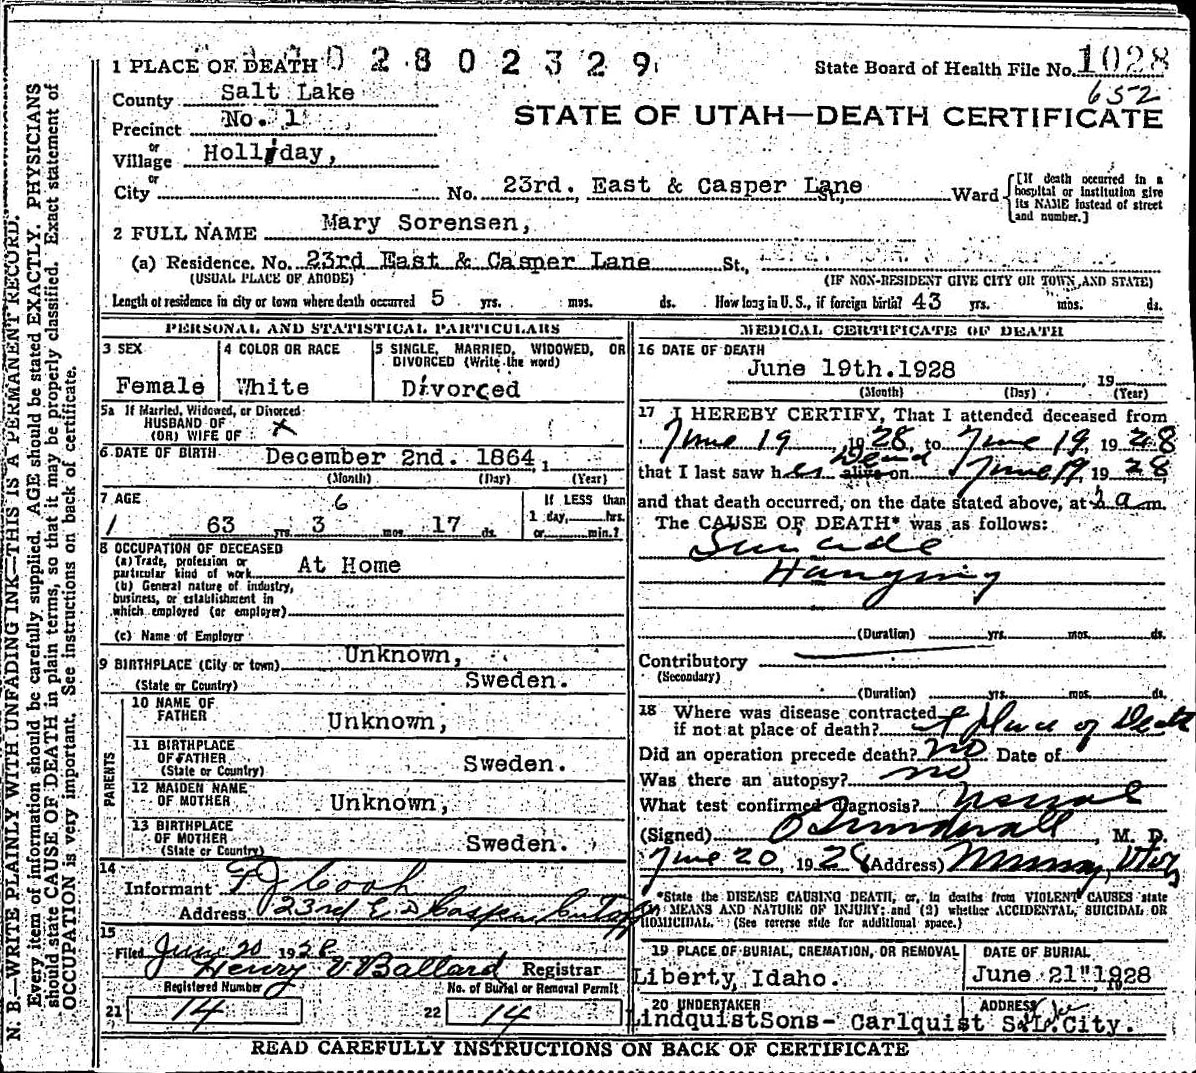 1 PLACE OF DEATH 0 2 8 0 2 3 2 9
State Board of Health File No. 1028
652
County Salt Lake
STATE OF UTAH—DEATH CERTIFICATE
Precinct No. 1
or
Village Holliday,
or
City No. 23rd. East & Casper Lane St., Ward
[If death occurred in a hospital or institution give its NAME instead of street and number.]
2 FULL NAME Mary Sorensen,
(a) Residence. No. 23rd East & Casper Lane St.,
(USUAL PLACE OF ABODE) (IF NON-RESIDENT GIVE CITY OR TOWN, AND STATE)
Length of residence in city or town where death occurred 5 yrs. mos. ds. How long in U. S., if foreign birth? 43 yrs. mos. ds.
PERSONAL AND STATISTICAL PARTICULARS
3 SEX
Female
4 COLOR OR RACE
White
5 SINGLE, MARRIED, WIDOWED, OR
DIVORCED (Write the word)
Divorced
5a If Married, Widowed, or Divorced
HUSBAND OF
(OR) WIFE OF x
6 DATE OF BIRTH December 2nd. 1864
(Month) (Day) (Year)
7 AGE 6
1 63 yrs. 3 mos. 17 ds.
If LESS than
1 day, hrs.
or min.?
8 OCCUPATION OF DECEASED
(a) Trade, profession or
particular kind of work At Home
(b) General nature of industry,
business, or establishment in
which employed (or employer)
(c) Name of Employer
9 BIRTHPLACE (City or town) Unknown,
(State or Country) Sweden.
PARENTS
10 NAME OF
FATHER Unknown,
11 BIRTHPLACE
OF FATHER
(State or Country) Sweden.
12 MAIDEN NAME
OF MOTHER Unknown,
13 BIRTHPLACE
OF MOTHER
(State or Country) Sweden.
14
Informant Cook
Address 23rd E & Casper
15
Filed June 20 1928
Henry V Ballard Registrar
Registered Number No. of Burial or Removal Permit
21 14 22 14
MEDICAL CERTIFICATE OF DEATH
16 DATE OF DEATH
June 19th. 1928 , 19
(Month) (Day) (Year)
17 I HEREBY CERTIFY, That I attended deceased from
June 19 1928, to June 19, 1928
that I last saw her Dead alive on June 19, 1928
and that death occurred, on the date stated above, at a m.
The CAUSE OF DEATH* was as follows:
Suicide
Hanging
(Duration) yrs. mos. ds.
Contributory
(Secondary)
(Duration) yrs. mos. ds.
18 Where was disease contracted
if not at place of death? At place of Death
Did an operation precede death? no Date of
Was there an autopsy? no
What test confirmed diagnosis?
(Signed) M. D.
June 20, 1928 (Address) Murray, Utah
*State the DISEASE CAUSING DEATH, or, in deaths from VIOLENT CAUSES state
(1) MEANS AND NATURE OF INJURY; and (2) whether ACCIDENTAL, SUICIDAL OR
HOMICIDAL. (See reverse side for additional space.)
19 PLACE OF BURIAL, CREMATION, OR REMOVAL
Liberty, Idaho.
DATE OF BURIAL
June 21" 1928
20 UNDERTAKER
LindquistSons- Carlquist
ADDRESS
S.L. City.
READ CAREFULLY INSTRUCTIONS ON BACK OF CERTIFICATE
N. B.—WRITE PLAINLY WITH UNFADING INK—THIS IS A PERMANENT RECORD.
Every item of information should be carefully supplied. AGE should be stated EXACTLY. PHYSICIANS
should state CAUSE OF DEATH in plain terms, so that it may be properly classified. Exact statement of
OCCUPATION is very important. See instructions on back of certificate.